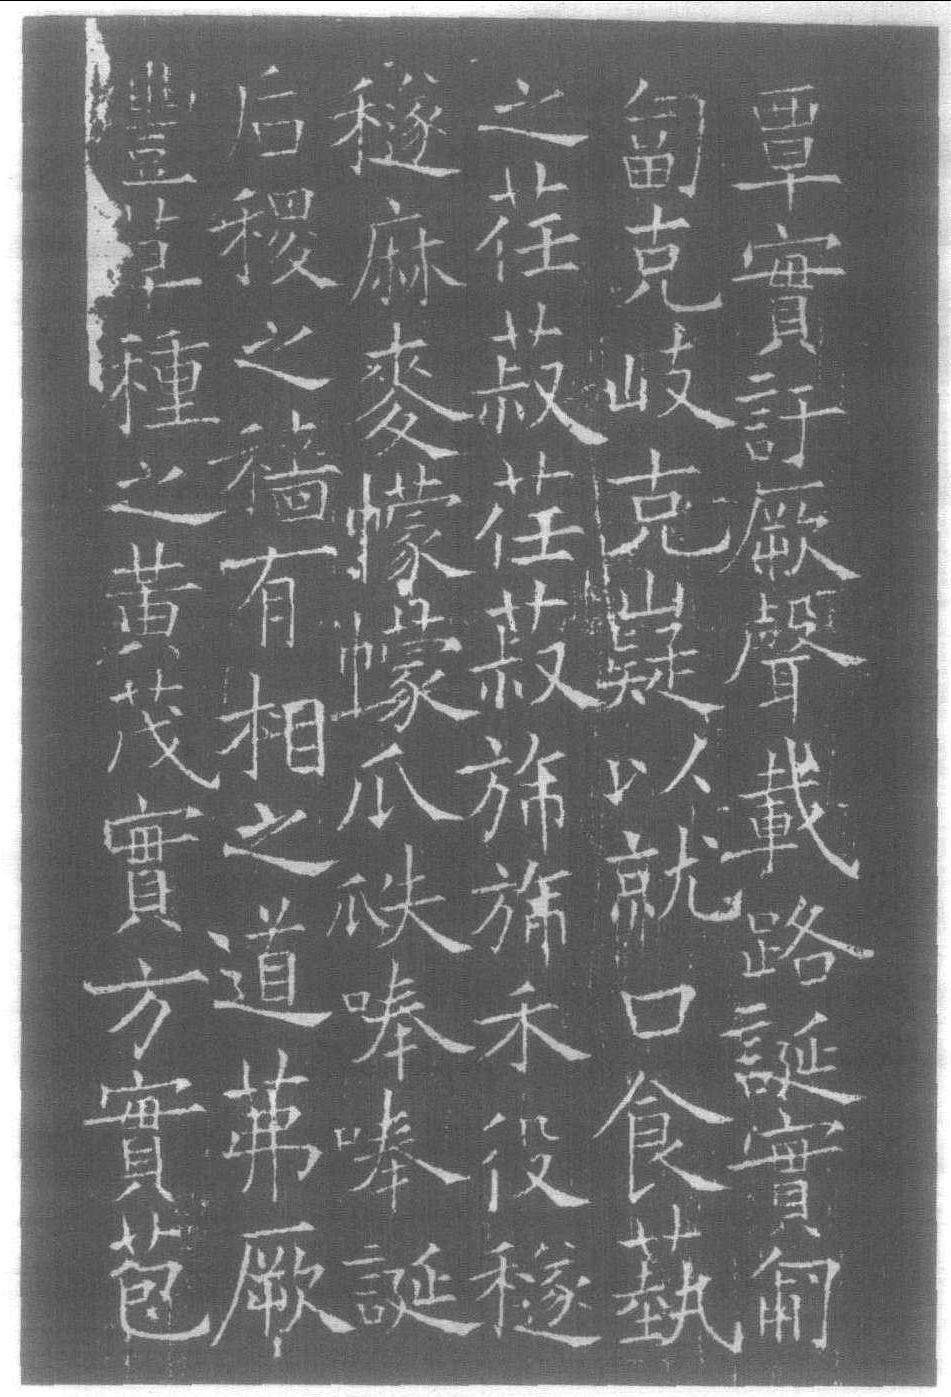 覃實訏厥聲載路誕實匍
匐克岐克嶷以就口食蓺
之荏菽荏菽旆旆禾役穟
穟麻麥幪幪瓜瓞唪唪誕
后稷之穡有相之道茀厥
豐草種之黃茂實方實苞